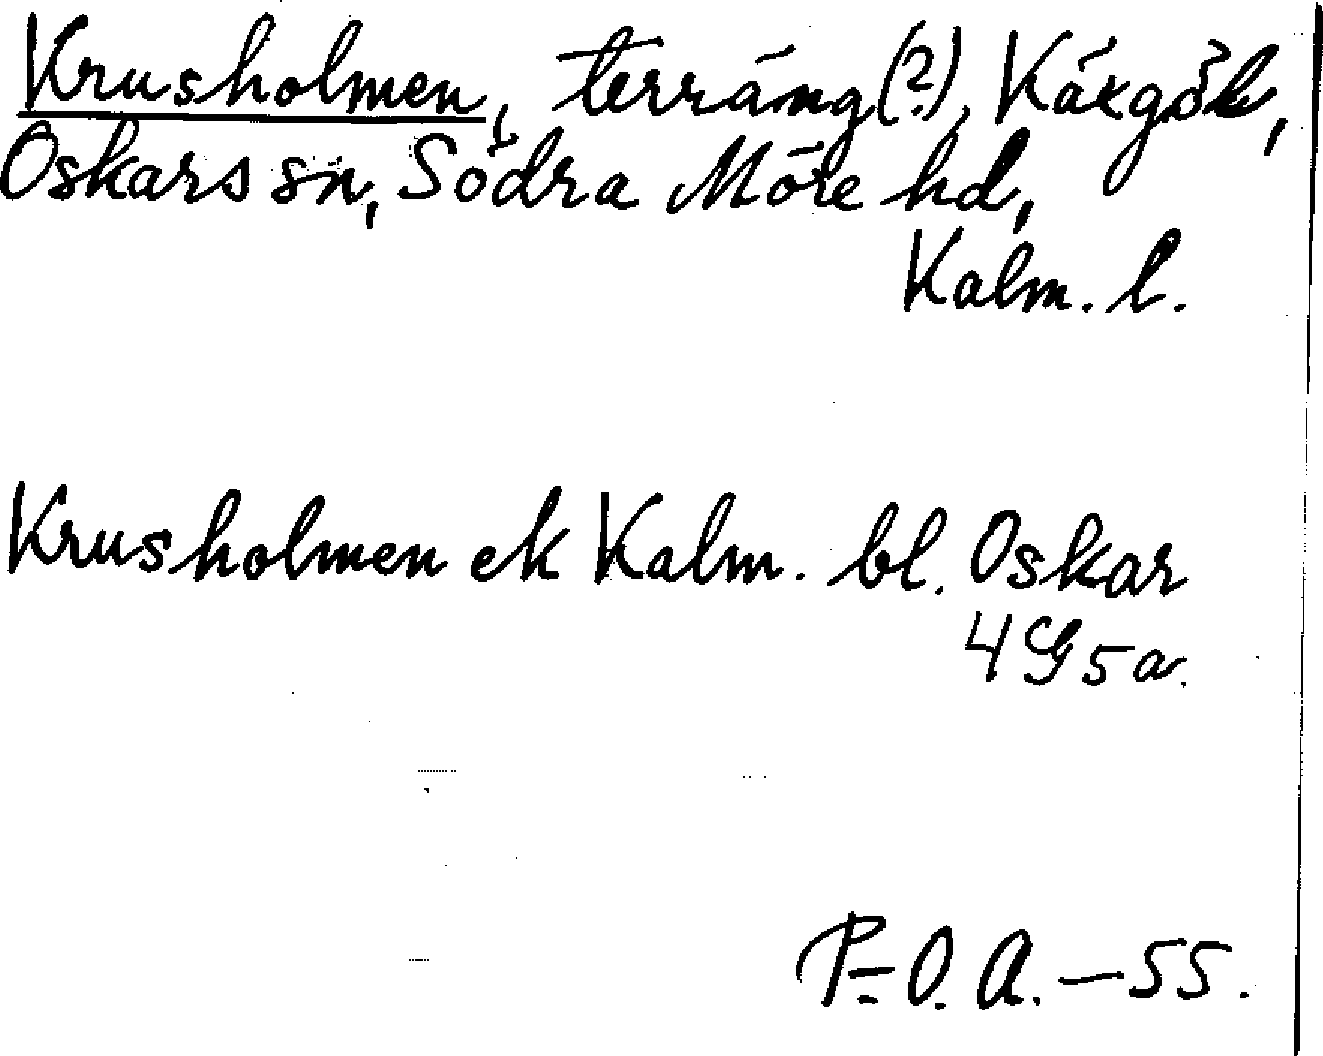 Krusholmen, terräng(?), Käxgöl,
Oskars sn, Södra Möre hd,
Kalm. l.
Krusholmen ek Kalm. bl. Oskar
4G5a.
P-O. A. - 55.